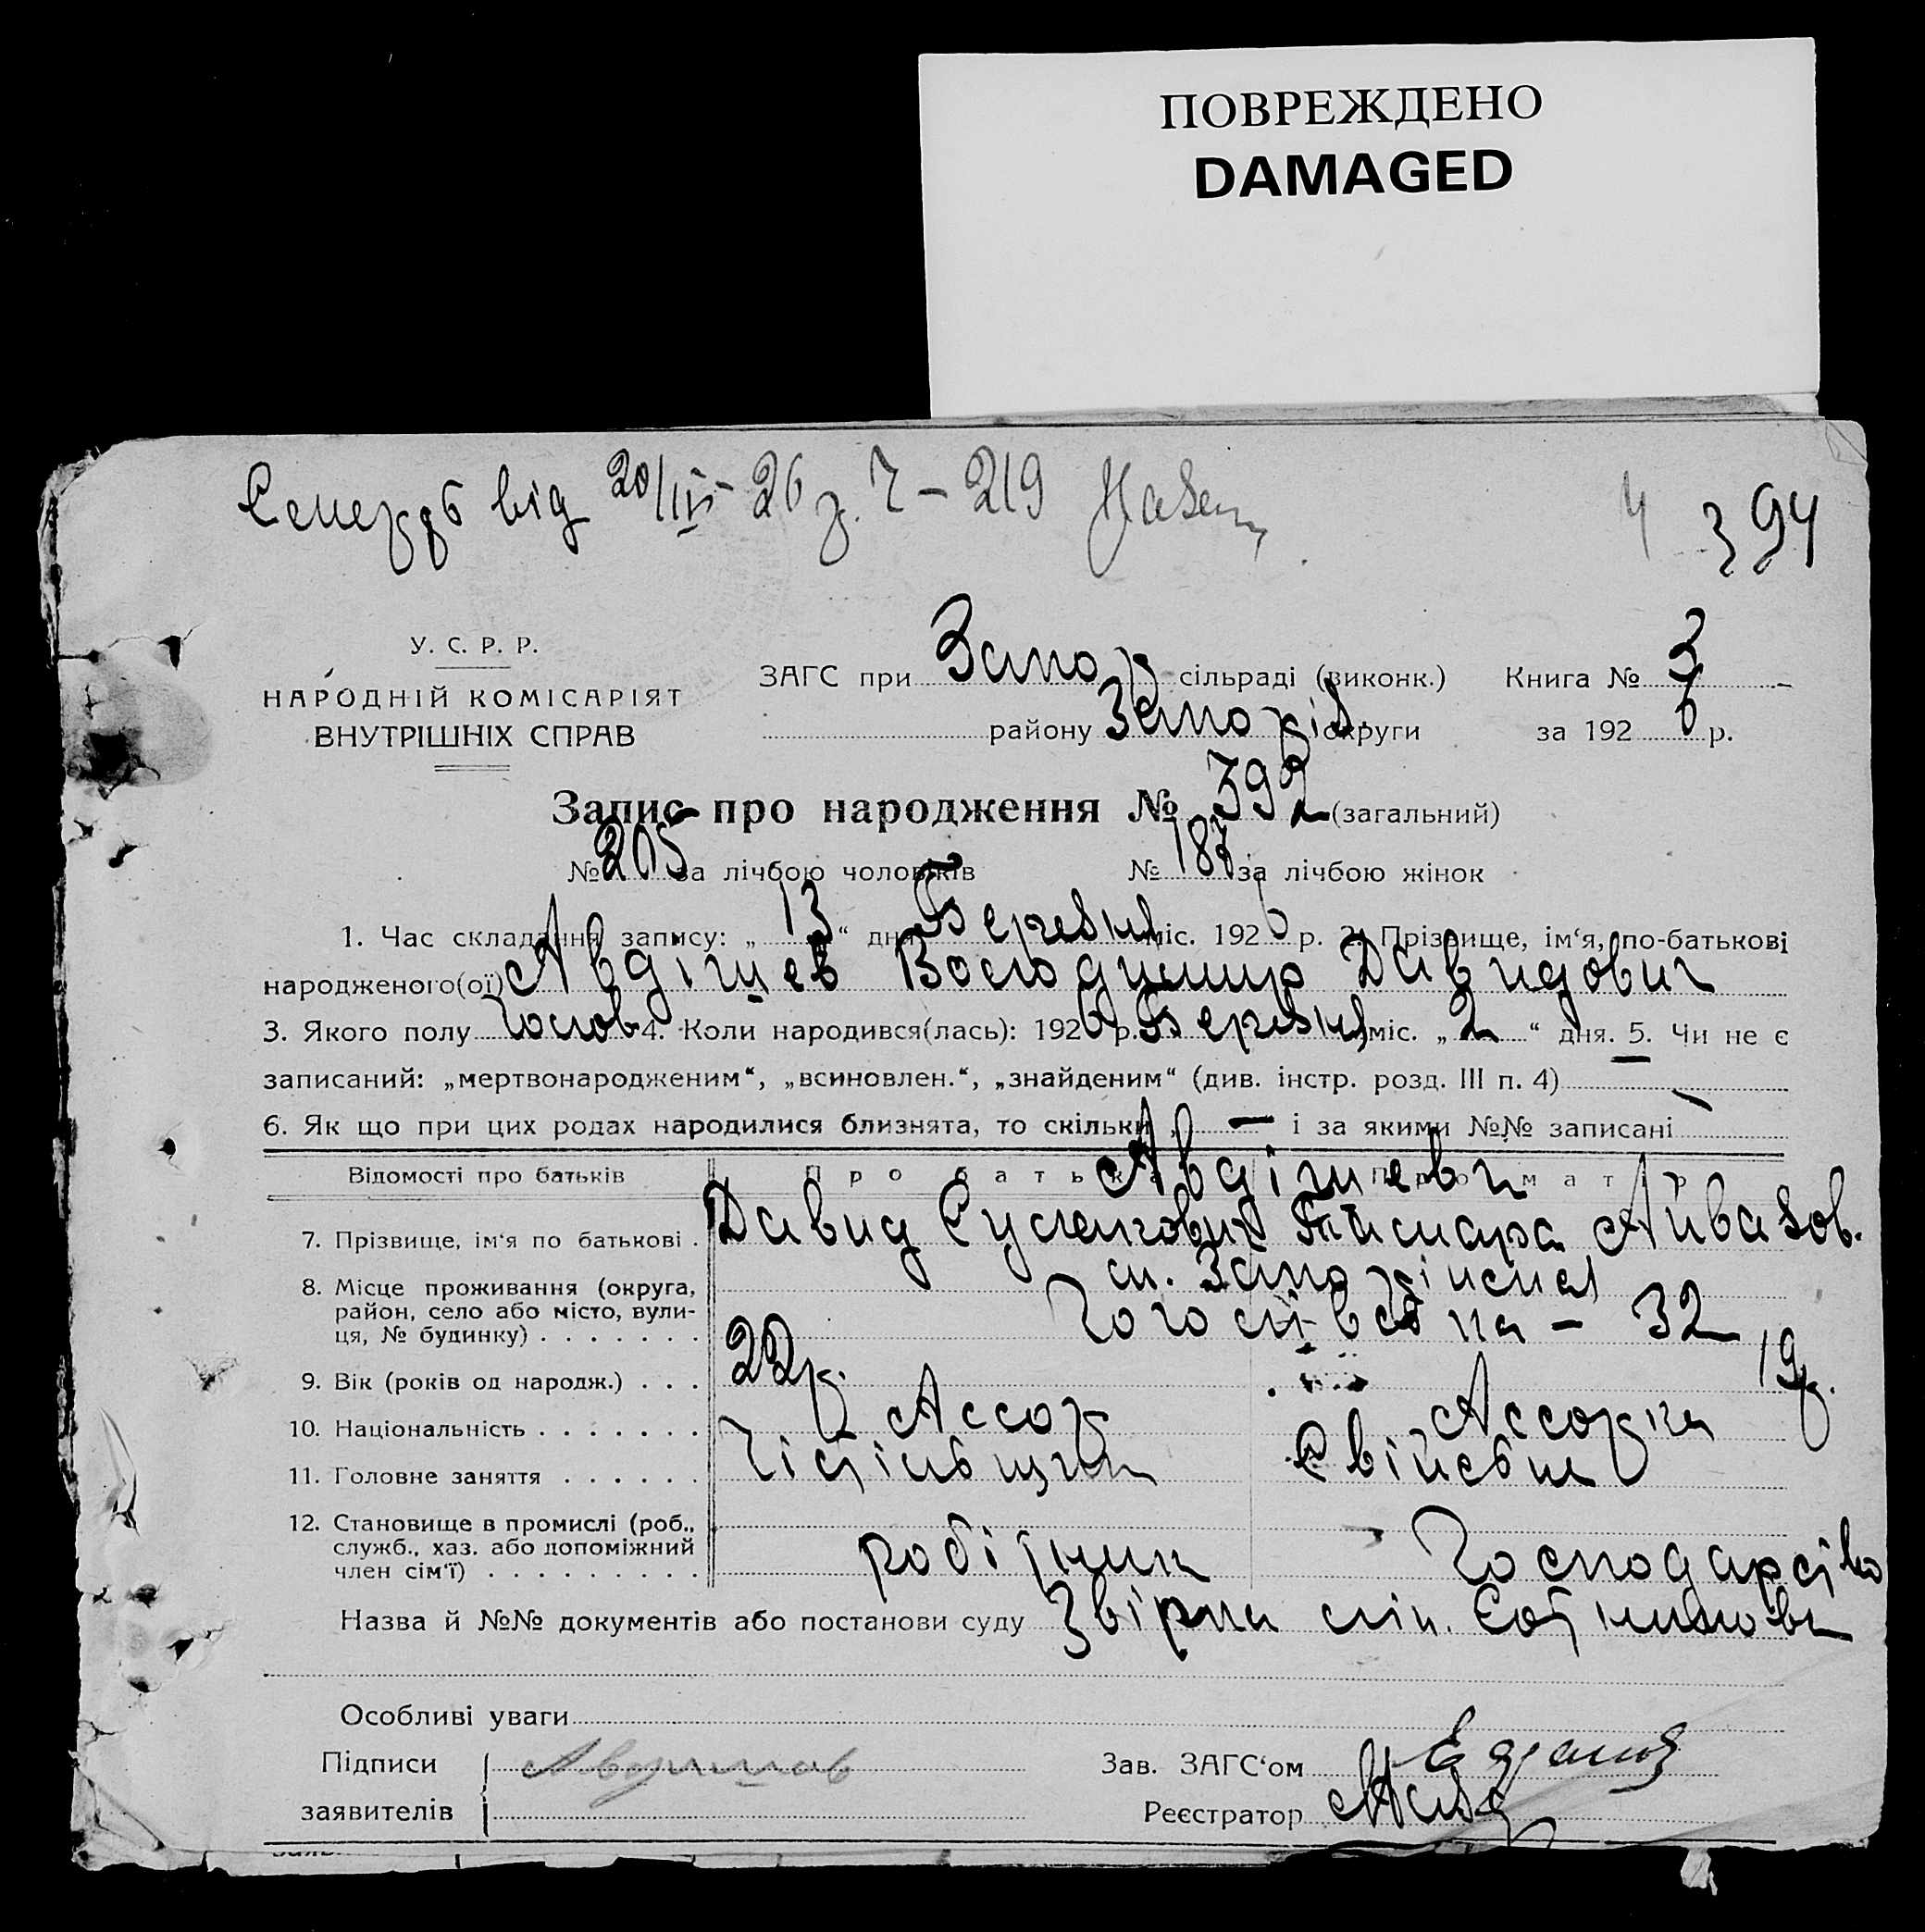 ПОВРЕЖДЕНО
DAMAGED
від 20/IV-26 р. Ч-219
394
У. С. Р. Р.
НАРОДНІЙ КОМІСАРІЯТ
ВНУТРІШНІХ СПРАВ
ЗАГС при Запор сільраді (виконк.) Книга № 3
району Запоріз округи за 1926 р.
Запис про народження № 392 (загальний)
№ 205 за лічбою чоловіків № 187 за лічбою жінок
1. Час складання запису: „13“ дня Березня міс. 1926 р. 2. Прізвище, ім‘я, по-батькові
народженого(ої) Авдішев Володимир Давидович
3. Якого полу Чолов 4. Коли народився(лась): 1926 р. Березня міс. „2“ дня. 5. Чи не є
записаний: „мертвонародженим“, „всиновлен.“, „знайденим“ (див. інстр. розд. III п. 4) —
6. Як що при цих родах народилися близнята, то скільки „ — і за якими №№ записані
Відомості про батьків Про батька Про матір
Авдішеви
7. Прізвище, ім‘я по батькові . Давид Тамара Айвазов.
8. Місце проживання (округа,
район, село або місто, вули-
ця, № будинку) . . . . . . . м. Запоріжжя
Гоголівська - 32
9. Вік (років од народж.) . . . 22 р. 19 р.
10. Національність . . . . . . . Ассор Ассорка
11. Головне заняття . . . . . . Чістільщик Свійське
12. Становище в промислі (роб.,
служб., хаз. або допоміжний
член сім‘ї) . . . . . . . . . робітник Господарство
Назва й №№ документів або постанови суду Звірка
Особливі уваги
Підписи
заявителів
Зав. ЗАГС‘ом
Реєстратор